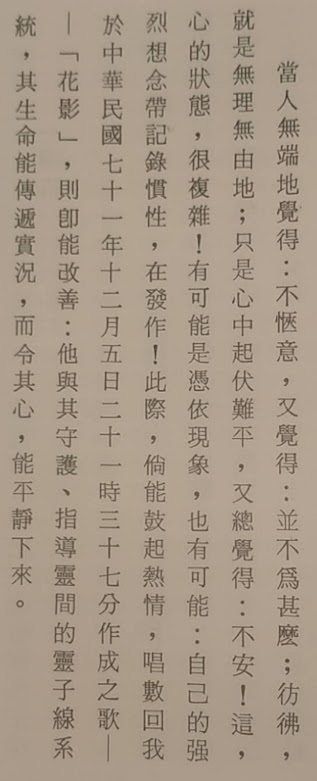 當人無端地覺得：不愜意，又覺得：並不爲甚麼；彷彿，
就是無理無由地；只是心中起伏難平，又總覺得：不安！這，
心的狀態，很複雜！有可能是憑依現象，也有可能：自己的强
烈想念帶記錄慣性，在發作！此際，倘能鼓起熱情，唱數回我
於中華民國七十一年十二月五日二十一時三十七分作成之歌—
—「花影」，則卽能改善：他與其守護、指導靈間的靈子線系
統，其生命能傳遞實況，而令其心，能平靜下來。